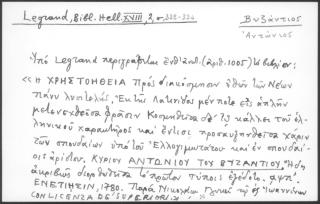 Legrand, Bibl. Hell. XVIII, 2, σ. 332-334
Βυζάντιος
Ἀντώνιος
Ὑπὸ Legrand περιγράφεται (ἀριθ. 1005) τὸ βιβλίον:
«Η ΧΡΗΣΤΟΗΘΕΙΑ Πρὸς διακόσμησιν ἠθῶν τῶν Νέων
πάνυ λυσιτελής, Ἐκ τῆς Λατινίδος μέν ποτε εἰς ἁπλῆν
μετενεχθεῖσα φράσιν Κοσμηθεῖσα τῷ κάλλει τοῦ ἑλ-
ληνικοῦ χαρακτῆρος καὶ χάριν
τῶν σπουδαίων ὑπὸ τοῦ Ἐλλογιμωτάτου καὶ ἐν σπουδαί-
οις ἀρίστου, ΚΥΡΙΟΥ ΑΝΤΩΝΙΟΥ ΤΟΥ ΒΥΖΑΝΤΙΟΥ. Ἤδη
ἀκριβῶς διορθωθεῖσα τὸ πρῶτον τύποις ἐξεδόθη.
ΕΝΕΤΙΗΣΙΝ, 1780. Παρὰ Νικολάῳ Γλυκεῖ τῷ ἐξ Ἰωαννίνων
CON LICENZA DE' SUPERIORI.»